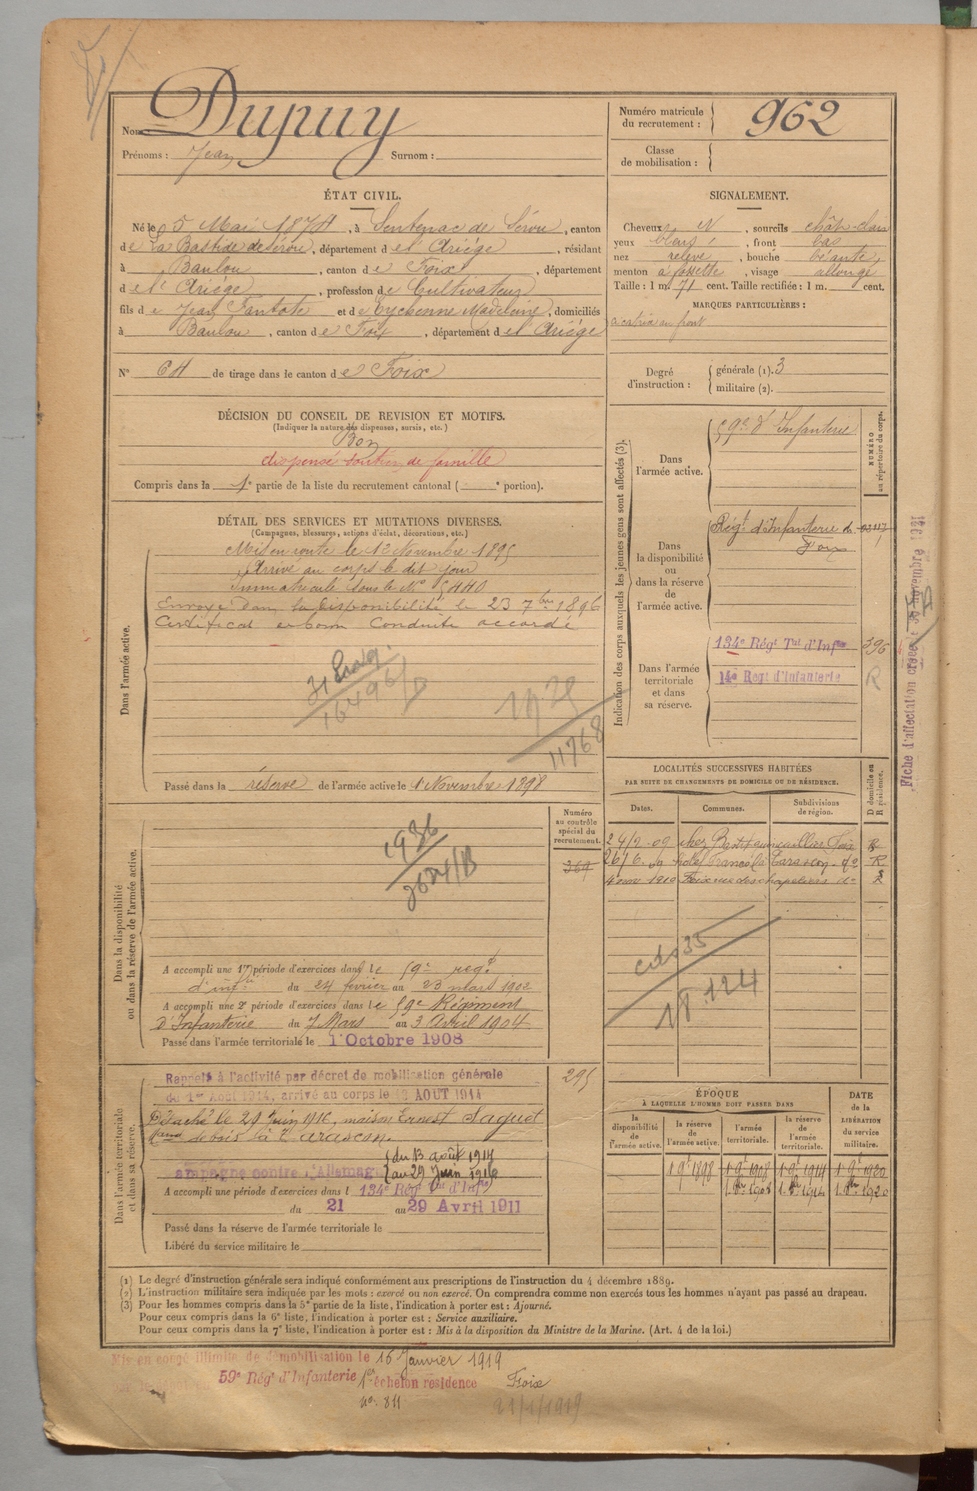 Nom Dupuy
Prénoms : Jean Surnom :
Numéro matricule du recrutement : 962
Classe de mobilisation :
ÉTAT CIVIL.
Né le 5 Mai 1874, à Sentenac de Sérou, canton
de La Bastide de Sérou, département de l'Ariège, résidant
à Baulou, canton de Foix, département
de l'Ariège, profession de Cultivateur
fils de Jean et de Eychenne Madeleine, domiciliés
à Baulou, canton de Foix, département de l'Ariège
N° 64 de tirage dans le canton de Foix
SIGNALEMENT.
Cheveux N, sourcils chât-clair
yeux bleus, front bas
nez relevé, bouche béante,
menton à fossette, visage allongé
Taille : 1 m. 71 cent. Taille rectifiée : 1 m. cent.
MARQUES PARTICULIÈRES :
au front
Degré d'instruction : générale (1). 3
militaire (2).
DÉCISION DU CONSEIL DE REVISION ET MOTIFS.
(Indiquer la nature des dispenses, sursis, etc.)
Bon
dispensé soutien de famille
Compris dans la 1e partie de la liste du recrutement cantonal ( e portion).
DÉTAIL DES SERVICES ET MUTATIONS DIVERSES.
(Campagnes, blessures, actions d'éclat, décorations, etc.)
Dans l'armée active.
Mis en route le 13 Novembre 1895
Arrivé au corps le dit jour
Immatriculé sous le N° 5440
Envoyé dans la disponibilité le 23 7bre 1896
Certificat de bonne conduite accordé
16496/
1929
11768
Passé dans la réserve de l'armée active le 1 Novembre 1898
Indication des corps auxquels les jeunes gens sont affectés (3).
NUMÉRO au répertoire du corps.
Dans l'armée active.
59e d'Infanterie
Dans la disponibilité ou dans la réserve de l'armée active.
Régt d'Infanterie de
Foix
Dans l'armée territoriale et dans sa réserve.
134e Régt Tal d'Infie
396
14e Regt d'Infanterie
R
Fiche d'affectation créée le novembre 1921
LOCALITÉS SUCCESSIVES HABITÉES
PAR SUITE DE CHANGEMENTS DE DOMICILE OU DE RÉSIDENCE.
Dates. Communes. Subdivisions de région. D domicile ou R résidence.
24/2-09 chez Foix R
26/6-09 Tarascon do R
4 nov 1910 Foix rue des chapeliers do R
cdo 35
18.124
Dans la disponibilité ou dans la réserve de l'armée active.
Numéro au contrôle spécial du recrutement.
369
1936
A accompli une 1re période d'exercices dans le 59e régt
d'inftie du 24 février au 23 mars 1902
A accompli une 2e période d'exercices dans le 59e Régiment
d'Infanterie du 7 Mars au 3 Avril 1904
Passé dans l'armée territoriale le 1 Octobre 1908
Dans l'armée territoriale et dans sa réserve.
295
Rappelé à l'activité par décret de mobilisation générale
du 1er Août 1914, arrivé au corps le 12 AOUT 1914
Détaché le 29 juin 1916, maison Ernest Saquet
de bois à Tarascon.
Campagne contre l'Allemagne
du 13 août 1914
au 29 Juin 1916
A accompli une période d'exercices dans l 134e Régt Tal d'Infie
du 21 au 29 Avril 1911
Passé dans la réserve de l'armée territoriale le
Libéré du service militaire le
ÉPOQUE
À LAQUELLE L'HOMME DOIT PASSER DANS
DATE de la LIBÉRATION du service militaire.
la disponibilité de l'armée active. la réserve de l'armée active. l'armée territoriale. la réserve de l'armée territoriale.
1 9e 1898 1 9e 1908 1 9e 1914 1 9e 1920
1 8bre 1908 1 8bre 1914 1 8bre 1920
(1) Le degré d'instruction générale sera indiqué conformément aux prescriptions de l'instruction du 4 décembre 1889.
(2) L'instruction militaire sera indiquée par les mots : exercé ou non exercé. On comprendra comme non exercés tous les hommes n'ayant pas passé au drapeau.
(3) Pour les hommes compris dans la 5e partie de la liste, l'indication à porter est : Ajourné.
Pour ceux compris dans la 6e liste, l'indication à porter est : Service auxiliaire.
Pour ceux compris dans la 7e liste, l'indication à porter est : Mis à la disposition du Ministre de la Marine. (Art. 4 de la loi.)
Mis en congé illimité de démobilisation le 16 Janvier 1919
59e Régt d'Infanterie 1er échelon résidence Foix
no. 811
21/1/1919